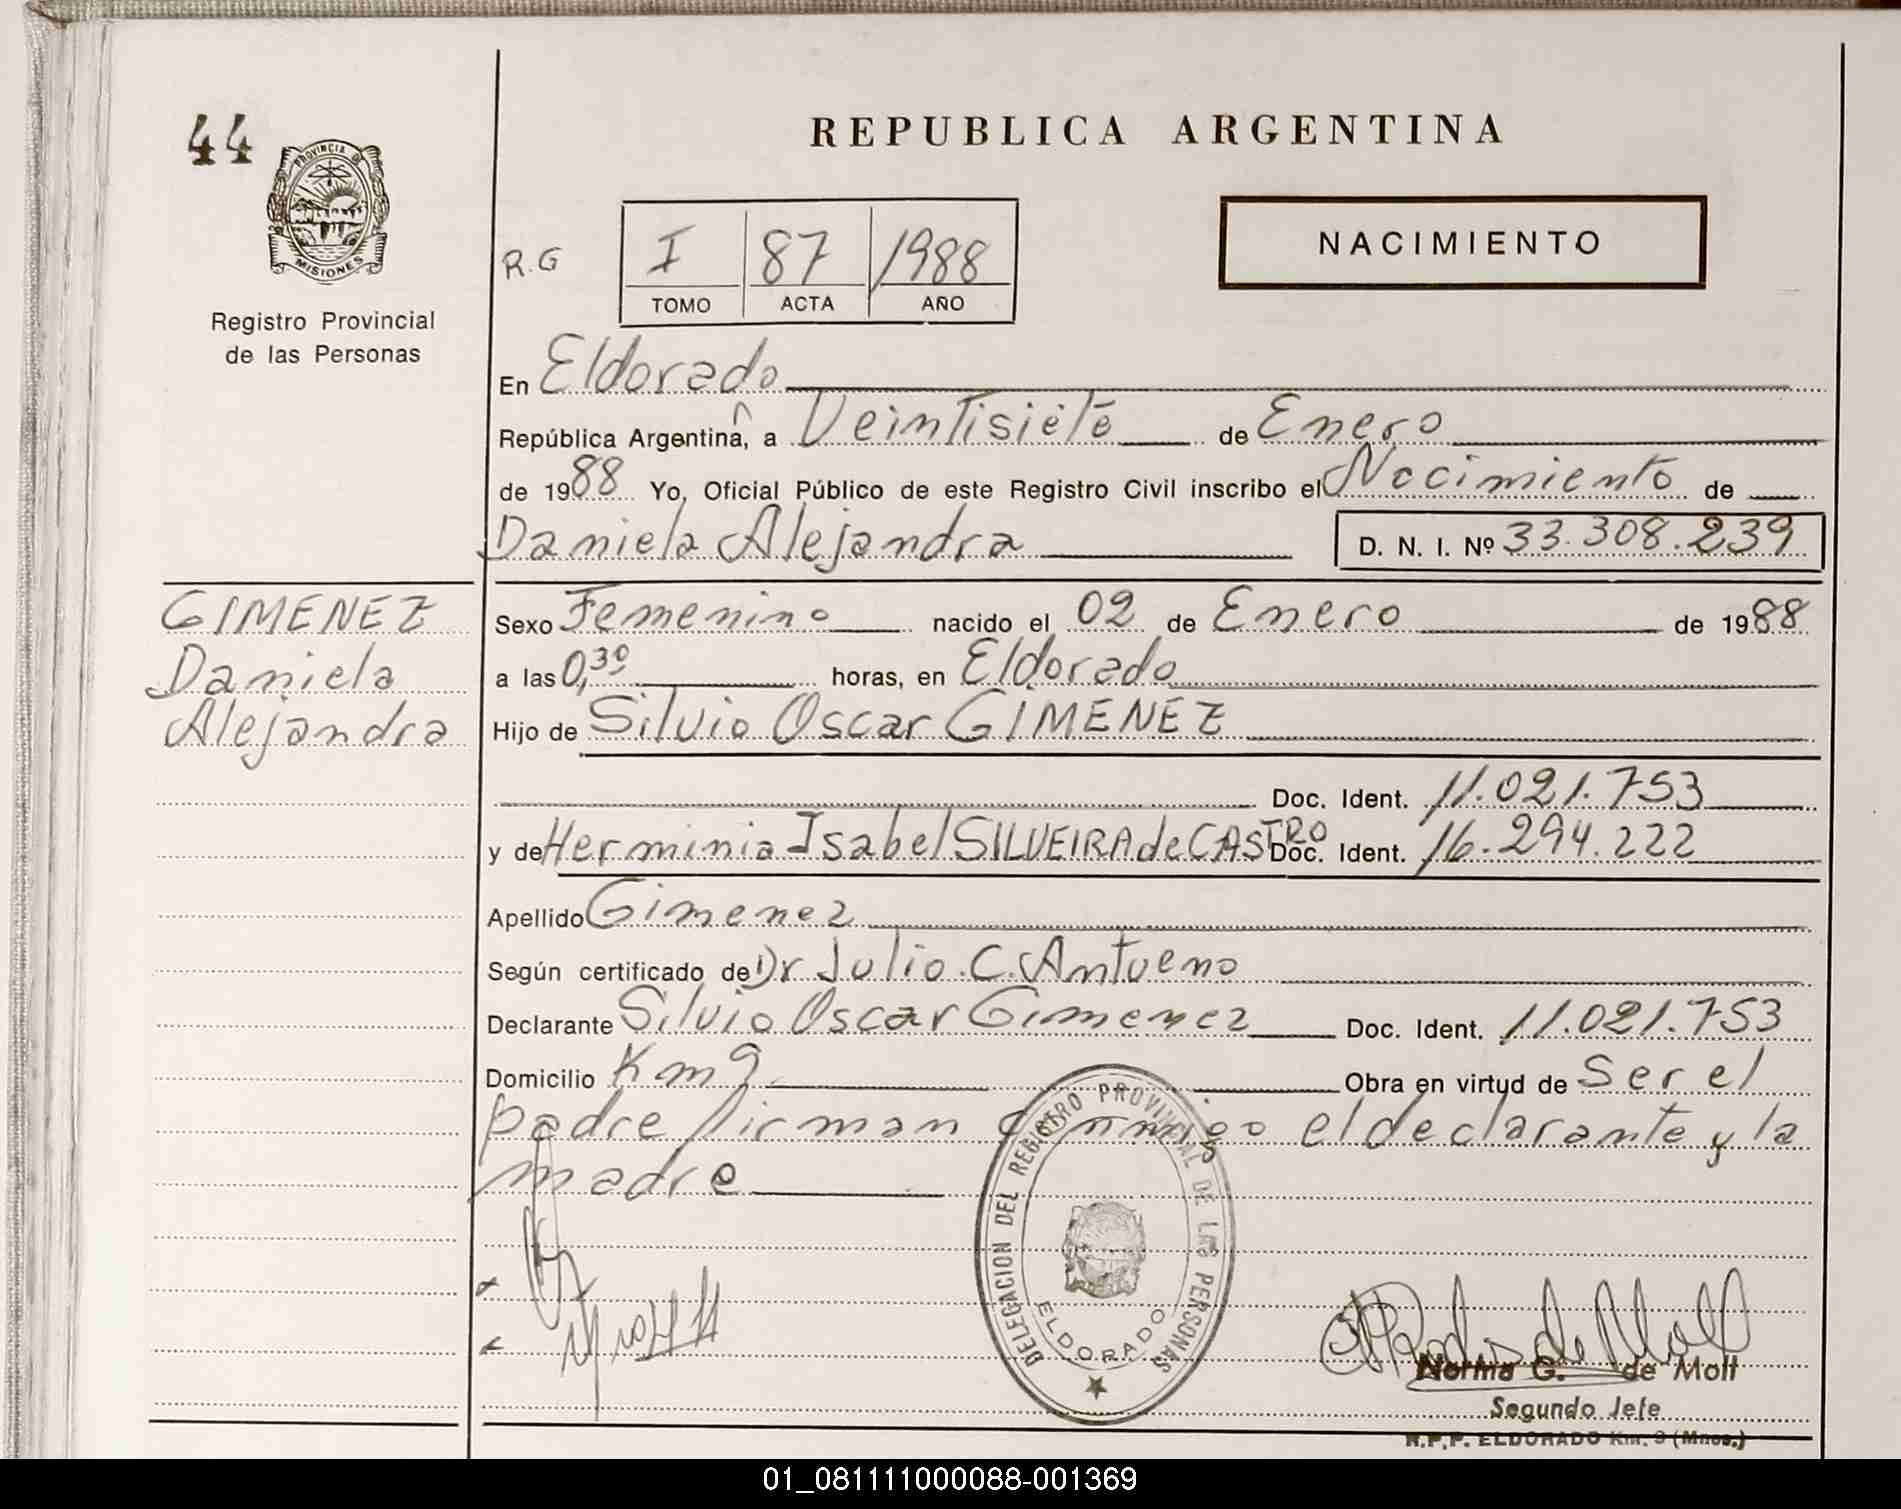 44
PROVINCIA DE
MISIONES
Registro Provincial
de las Personas
REPUBLICA ARGENTINA
R.G
I 87 1988
TOMO ACTA AÑO
NACIMIENTO
En Eldorado
República Argentina, a Veintisiete de Enero
de 1988 Yo, Oficial Público de este Registro Civil inscribo el Nacimiento de
Daniela Alejandra D. N. I. Nº 33.308.239
GIMENEZ
Daniela
Alejandra
Sexo Femenino nacido el 02 de Enero de 1988
a las 0,30 horas, en Eldorado
Hijo de Silvio Oscar GIMENEZ
Doc. Ident. 11.021.753
y de Herminia Isabel SILVEIRA de CASTRO Doc. Ident. 16.294.222
Apellido Gimenez
Según certificado de Dr Julio C. Antueno
Declarante Silvio Oscar Gimenez Doc. Ident. 11.021.753
Domicilio Km 9 Obra en virtud de Ser el
padre firman conmigo el declarante y la
madre
DELEGACION DEL REGISTRO PROVINCIAL DE LAS PERSONAS
ELDORADO
Norma G. de Moll
Segundo Jefe
R.P.P. ELDORADO Km. 9 (Mnes.)
01_081111000088-001369